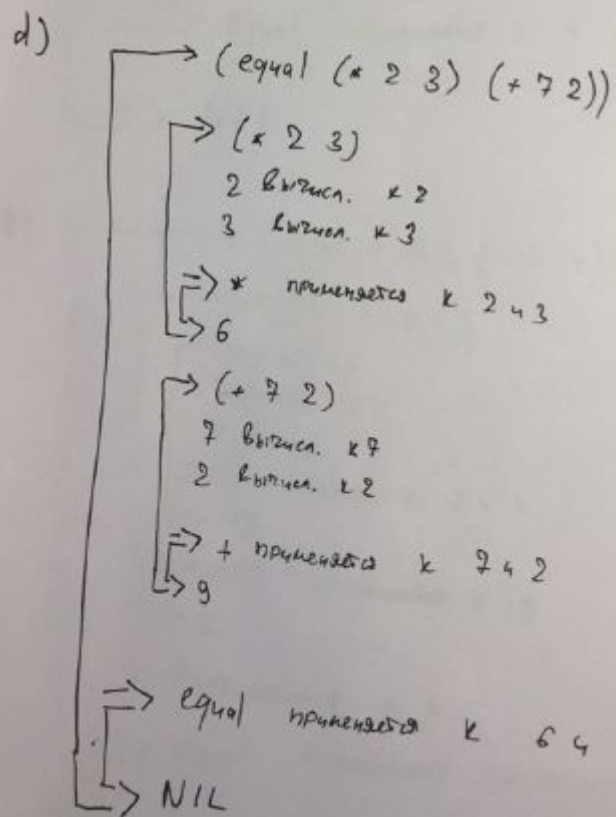 d)
(equal (* 2 3) (+ 7 2))
(* 2 3)
2 вычисл. к 2
3 вычисл. к 3
* применяется к 2 и 3
6
(+ 7 2)
7 вычисл. к 7
2 вычисл. к 2
+ применяется к 7 и 2
9
equal применяется к 6 и
NIL